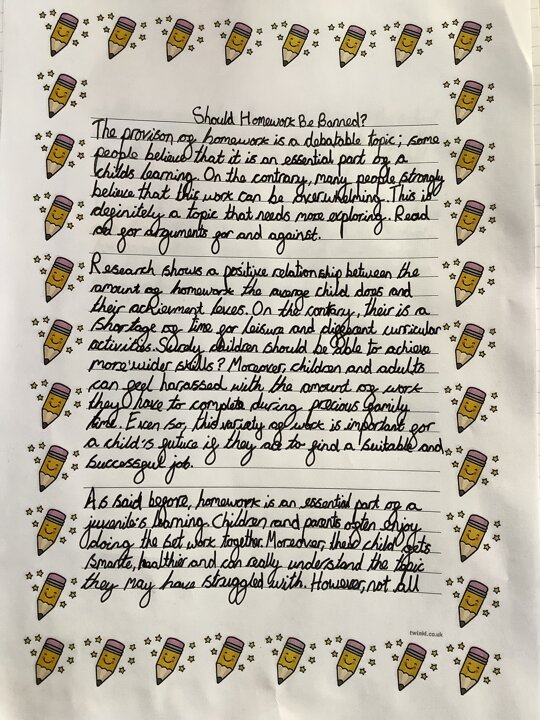 Should Homework Be Banned?
The provison of homework is a debatable topic; some
people believe that it is an essential part of a
childs learning. On the contrary, many people strongly
believe that this work can be overwhelming. This is
definitely a topic that needs more exploring. Read
on for arguments for and against.
Research shows a positive relationship between the
amount of homework the avarge child does and
their achievment leves. On the contary, their is a
shortage of time for leisure and different curricular
activities. Surely children should be able to achieve
more wider skills? Moreover, children and adults
can feel harassed with the amount of work
they have to complete during precious family
time. Even so, this variety of work is important for
a child's future if they are to find a suitable and
successful job.
As said before, homework is an essential part of a
juvenile's learning. Children and parents often enjoy
doing the set work together. Moreover, their child gets
smarter, healthier and can really understand the topic
they may have struggled with. However, not all
twinkl.co.uk